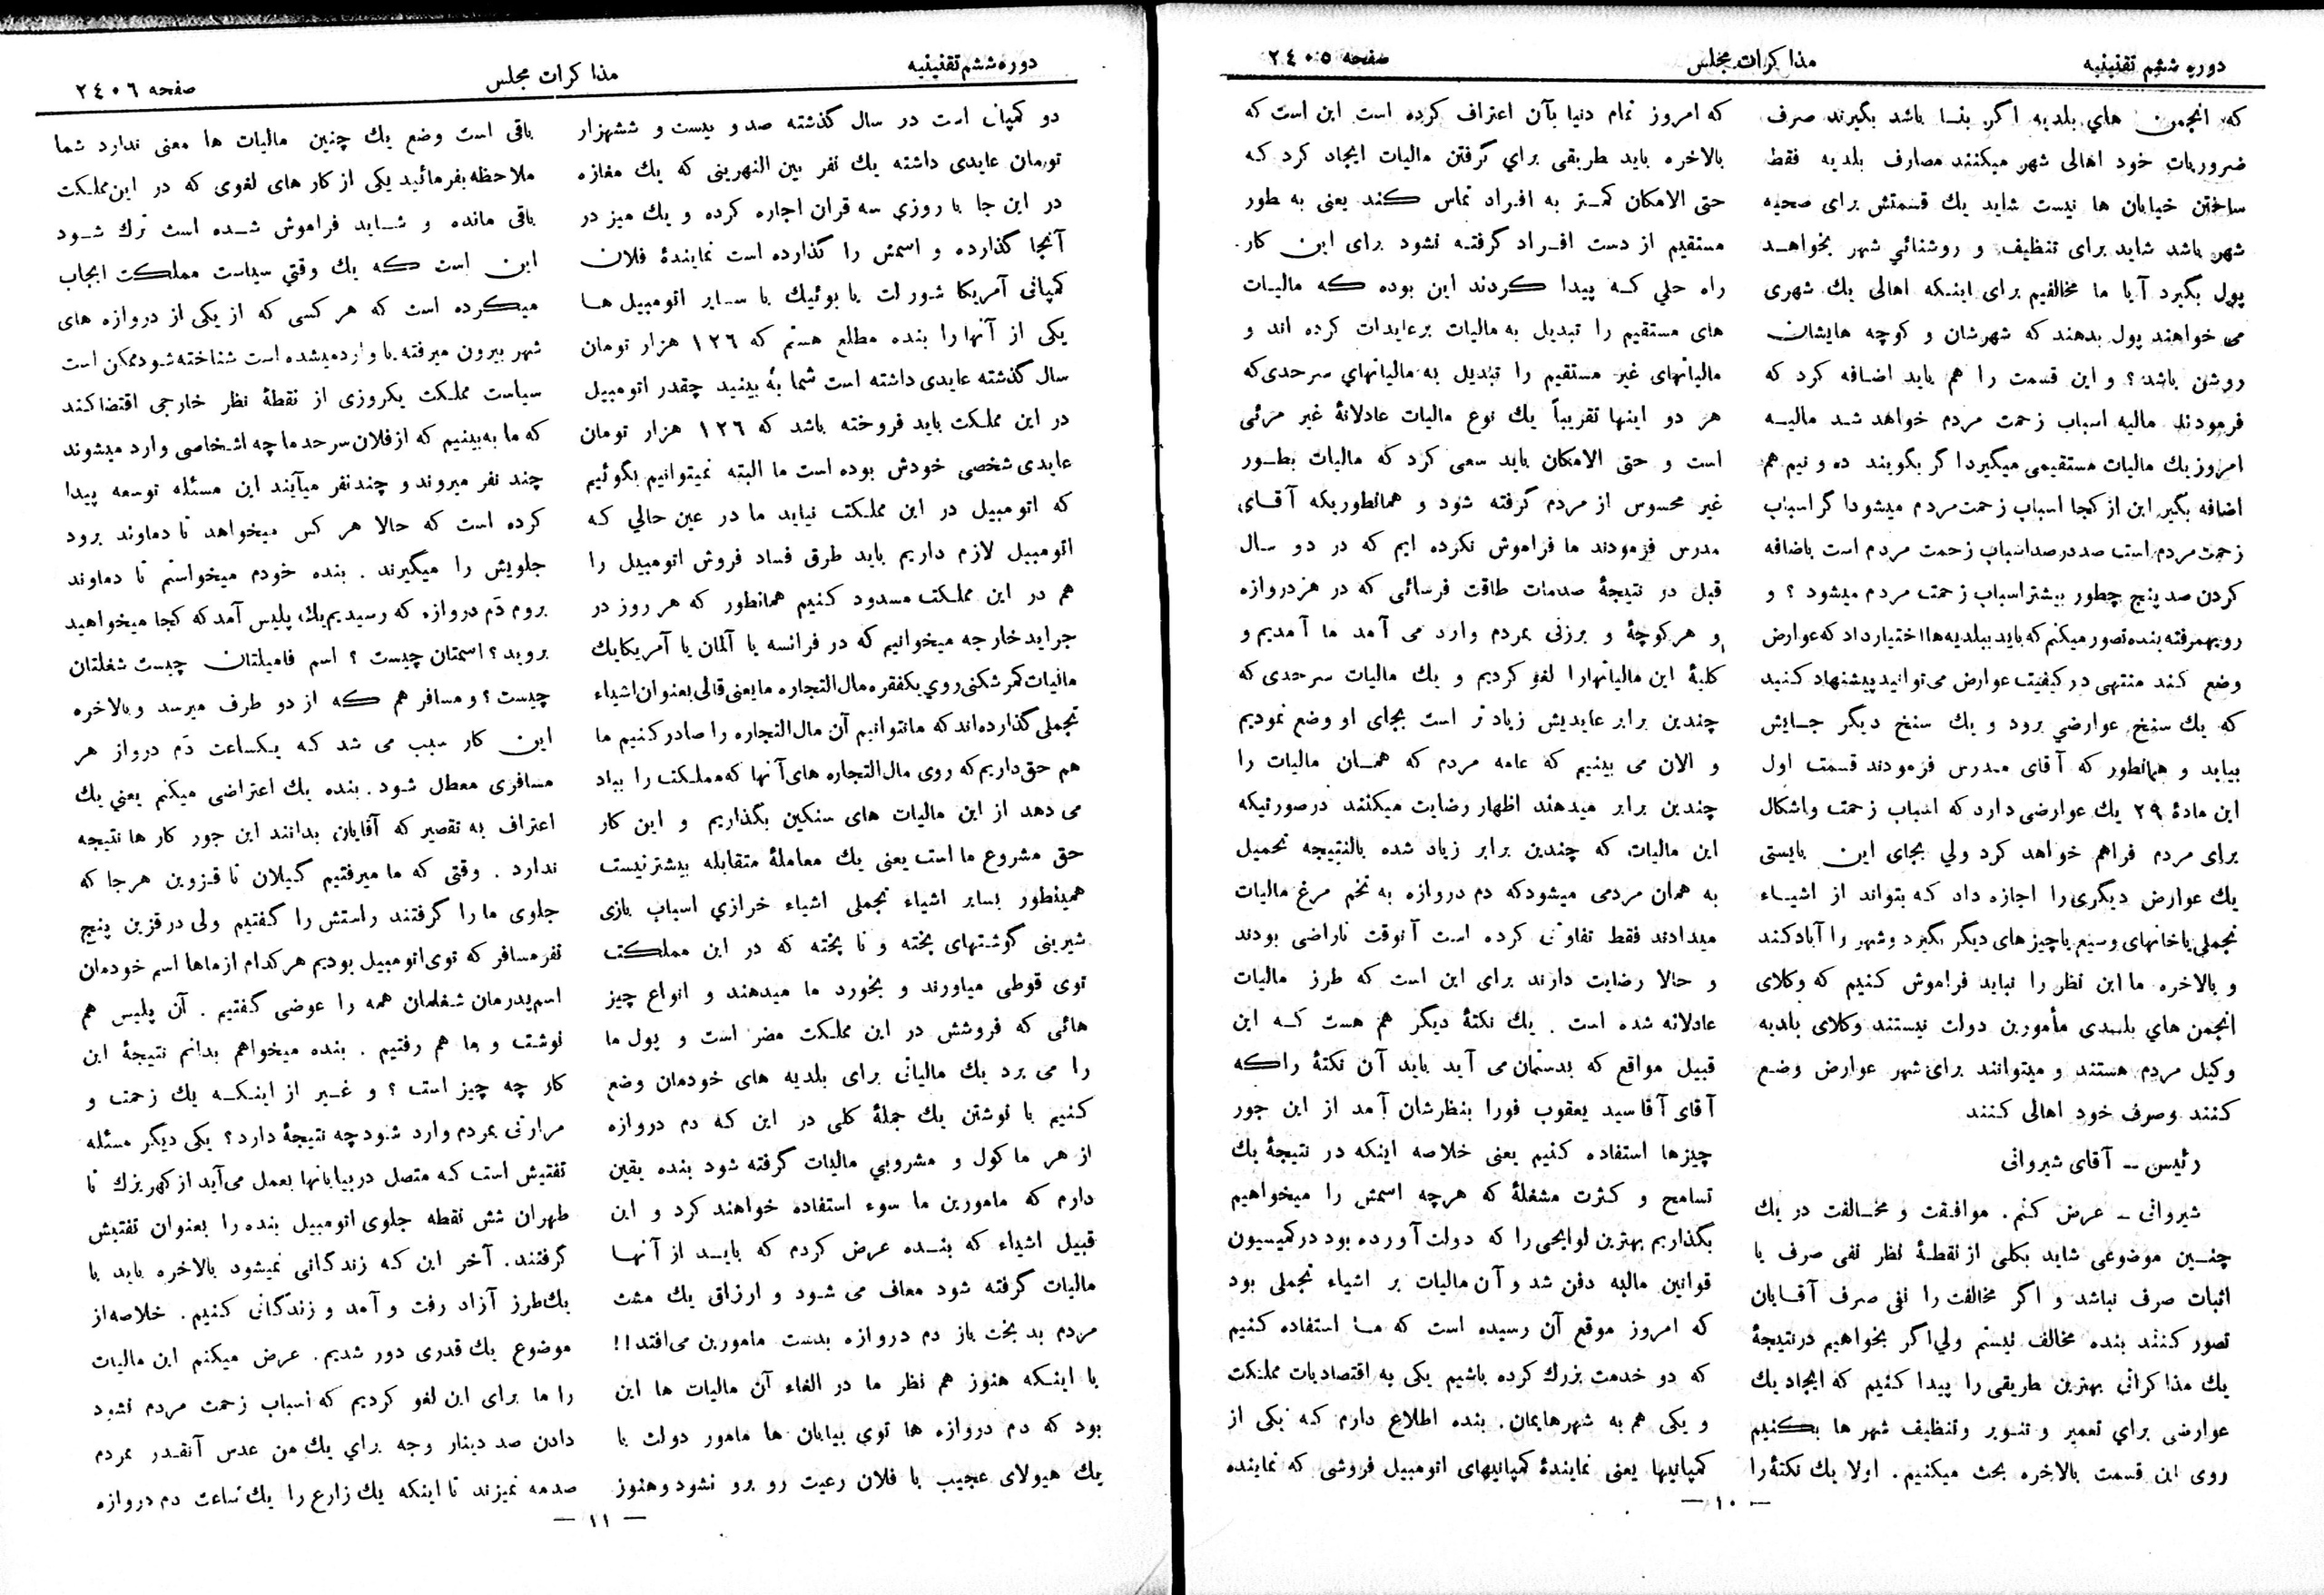 دوره ششم تقنینیه
مذاکرات مجلس
صفحه ۲۴۰۵
که انجمن های بلدیه اگر بنا باشد بگیرند صرف
ضروریات خود اهالی شهر میکنند مصارف بلدیه فقط
ساختن خیابان ها نیست شاید یك قسمتش برای صحیه
شهر باشد شاید برای تنظیف و روشنائی شهر بخواهد
پول بگیرد آیا ما مخالفیم برای اینکه اهالی یك شهری
می خواهند پول بدهند که شهرشان و کوچه هایشان
روشن باشد؟ و این قسمت را هم باید اضافه کرد که
فرمودند مالیه اسباب زحمت مردم خواهد شد مالیه
امروز یك مالیات مستقیمی میگیرد اگر بگویند ده و نیم هم
اضافه بگیر این از کجا اسباب زحمت مردم میشود اگر اسباب
زحمت مردم است صد در صد اسباب زحمت مردم است باضافه
کردن صد پنج چطور بیشتر اسباب زحمت مردم میشود ؟ و
رویهمرفته بنده تصور میکنم که باید ببلدیه ها اختیار داد که عوارض
وضع کند منتهی در کیفیت عوارض می توانید پیشنهاد کنید
که یك سنخ عوارضی برود و یك سنخ دیگر جایش
بیاید و همانطور که آقای مدرس فرمودند قسمت اول
این مادهٔ ۲۹ یك عوارضی دارد که اسباب زحمت و اشکال
برای مردم فراهم خواهد کرد ولی بجای این بایستی
یك عوارض دیگری را اجازه داد که بتواند از اشیاء
تجملی یا خانهای وسیع یا چیز های دیگر بگیرد و شهر را آباد کند
و بالاخره ما این نظر را نباید فراموش کنیم که وکلای
انجمن های بلدی مأمورین دولت نیستند وکلای بلدیه
وکیل مردم هستند و میتوانند برای شهر عوارض وضع
کنند و صرف خود اهالی کنند
رئیس ــ آقای شیروانی
شیروانی ــ عرض کنم. موافقت و مخالفت در یك
چنین موضوعی شاید بکلی از نقطهٔ نظر نفی صرف یا
اثبات صرف نباشد و اگر مخالفت را نفی صرف آقایان
تصور کنند بنده مخالف نیستم ولی اگر بخواهیم در نتیجهٔ
یك مذاکراتی بهترین طریقی را پیدا کنیم که ایجاد یك
عوارضی برای تعمیر و تنویر و تنظیف شهر ها بکنیم
روی این قسمت بالاخره بحث میکنیم. اولا یك نکتهٔ را
که امروز تمام دنیا بآن اعتراف کرده است این است که
بالاخره باید طریقی برای گرفتن مالیات ایجاد کرد که
حتی الامکان کمتر به افراد تماس کند یعنی به طور
مستقیم از دست افراد گرفته نشود برای این کار
راه حلی که پیدا کردند این بوده که مالیات
های مستقیم را تبدیل به مالیات بر عایدات کرده اند و
مالیاتهای غیر مستقیم را تبدیل به مالیاتهای سرحدی که
هر دو اینها تقریباً یك نوع مالیات عادلانهٔ غیر مرئی
است و حتی الامکان باید سعی کرد که مالیات بطور
غیر محسوس از مردم گرفته شود و همانطوریکه آقای
مدرس فرمودند ما فراموش نکرده ایم که در دو سال
قبل در نتیجهٔ صدمات طاقت فرسائی که در هر دروازه
و هر کوچهٔ و برزنی بمردم وارد می آمد ما آمدیم و
کلیهٔ این مالیاتها را لغو کردیم و یك مالیات سرحدی که
چندین برابر عایدیش زیاد تر است بجای او وضع نمودیم
و الان می بینیم که عامه مردم که همان مالیات را
چندین برابر میدهند اظهار رضایت میکنند در صورتیکه
این مالیات که چندین برابر زیاد شده بالنتیجه تحمیل
به همان مردمی میشود که دم دروازه به تخم مرغ مالیات
میدادند فقط تفاوتی کرده است آنوقت ناراضی بودند
و حالا رضایت دارند برای این است که طرز مالیات
عادلانه شده است . یك نکتهٔ دیگر هم هست که این
قبیل مواقع که بدستمان می آید باید آن نکتهٔ را که
آقای آقا سید یعقوب فورا بنظرشان آمد از این جور
چیزها استفاده کنیم یعنی خلاصه اینکه در نتیجهٔ یك
تسامح و کثرت مشغلهٔ که هرچه اسمش را میخواهیم
بگذاریم بهترین لوایحی را که دولت آورده بود در کمیسیون
قوانین مالیه دفن شد و آن مالیات بر اشیاء تجملی بود
که امروز موقع آن رسیده است که ما استفاده کنیم
که دو خدمت بزرك کرده باشیم یکی به اقتصادیات مملکت
و یکی هم به شهرهایمان. بنده اطلاع دارم که یکی از
کمپانیها یعنی نمایندهٔ کمپانیهای اتومبیل فروشی که نماینده
ــ ۱۰ ــ
دوره ششم تقنینیه
مذاکرات مجلس
صفحه ۲۴۰۶
دو کمپانی است در سال گذشته صد و بیست و ششهزار
تومان عایدی داشته یك نفر بین النهرینی که یك مغازه
در این جا با روزی سه قران اجاره کرده و یك میز در
آنجا گذارده و اسمش را گذارده است نمایندهٔ فلان
کمپانی آمریکا شورلت یا بوئیك یا سایر اتومبیل ها
یکی از آنها را بنده مطلع هستم که ۱۲۶ هزار تومان
سال گذشته عایدی داشته است شما به بینید چقدر اتومبیل
در این مملکت باید فروخته باشد که ۱۲۶ هزار تومان
عایدی شخصی خودش بوده است ما البته نمیتوانیم بگوئیم
که اتومبیل در این مملکت نیاید ما در عین حالی که
اتومبیل لازم داریم باید طرق فساد فروش اتومبیل را
هم در این مملکت مسدود کنیم همانطور که هر روز در
جراید خارجه میخوانیم که در فرانسه یا آلمان یا آمریکا یك
مالیات کمر شکنی روی یکفقره مال التجاره ما یعنی قالی بعنوان اشیاء
تجملی گذارده اند که ما نتوانیم آن مال التجاره را صادر کنیم ما
هم حق داریم که روی مال التجاره های آنها که مملکت را بباد
می دهد از این مالیات های سنکین بگذاریم و این کار
حق مشروع ما است یعنی یك معاملهٔ متقابله بیشتر نیست
همینطور بسایر اشیاء تجملی اشیاء خرازی اسباب بازی
شیرینی گوشتهای پخته و نا پخته که در این مملکت
توی قوطی میاورند و بخورد ما میدهند و انواع چیز
هائی که فروشش در این مملکت مضر است و پول ما
را می برد یك مالیاتی برای بلدیه های خودمان وضع
کنیم با نوشتن یك جملهٔ کلی در این که دم دروازه
از هر ماکول و مشروبی مالیات گرفته شود بنده یقین
دارم که مامورین ما سوء استفاده خواهند کرد و این
قبیل اشیاء که بنده عرض کردم که باید از آنها
مالیات گرفته شود معاف می شود و ارزاق یك مشت
مردم بد بخت باز دم دروازه بدست مامورین می افتد!!
با اینکه هنوز هم نظر ما در الغاء آن مالیات ها این
بود که دم دروازه ها توی بیابان ها مامور دولت با
یك هیولای عجیب با فلان رعیت رو برو نشود و هنوز
باقی است وضع یك چنین مالیات ها معنی ندارد شما
ملاحظه بفرمائید یکی از کار های لغوی که در این مملکت
باقی مانده و شاید فراموش شده است ترك شود
این است که یك وقتی سیاست مملکت ایجاب
میکرده است که هر کسی که از یکی از دروازه های
شهر بیرون میرفته یا وارد میشده است شناخته شود ممکن است
سیاست مملکت یکروزی از نقطهٔ نظر خارجی اقتضا کند
که ما به بینیم که از فلان سرحد ما چه اشخاصی وارد میشوند
چند نفر میروند و چند نفر میآیند این مسئله توسعه پیدا
کرده است که حالا هر کس میخواهد تا دماوند برود
جلویش را میگیرند . بنده خودم میخواستم تا دماوند
بروم دَم دروازه که رسیدیم یك پلیس آمد که کجا میخواهید
بروید ؟ اسمتان چیست ؟ اسم فامیلتان چیست شغلتان
چیست ؟ و مسافر هم که از دو طرف میرسد و بالاخره
این کار سبب می شد که یکساعت دَم درواز هر
مسافری معطل شود. بنده یك اعتراضی میکنم یعنی یك
اعتراف به تقصیر که آقایان بدانند این جور کار ها نتیجه
ندارد . وقتی که ما میرفتیم گیلان تا قزوین هرجا که
جلوی ما را گرفتند راستش را گفتیم ولی در قزین پنج
نفر مسافر که توی اتومبیل بودیم هر کدام از ماها اسم خودمان
اسم پدرمان شغلمان همه را عوضی گفتیم . آن پلیس هم
نوشت و ما هم رفتیم . بنده میخواهم بدانم نتیجهٔ این
کار چه چیز است ؟ و غیر از اینکه یك زحمت و
مرارتی بمردم وارد شود چه نتیجهٔ دارد؟ یکی دیگر مسئله
تفتیش است که متصل در بیابانها بعمل می آید از کهریزك تا
طهران شش نقطه جلوی اتومبیل بنده را بعنوان تفتیش
گرفتند. آخر این که زندگانی نمیشود بالاخره باید با
یك طرز آزاد رفت و آمد و زندگانی کنیم. خلاصه از
موضوع یك قدری دور شدیم. عرض میکنم این مالیات
را ما برای این لغو کردیم که اسباب زحمت مردم نشود
دادن صد دینار وجه برای یك من عدس آنقدر بمردم
صدمه نمیزند تا اینکه یك زارع را یك ساعت دم دروازه
ــ ۱۱ ــ